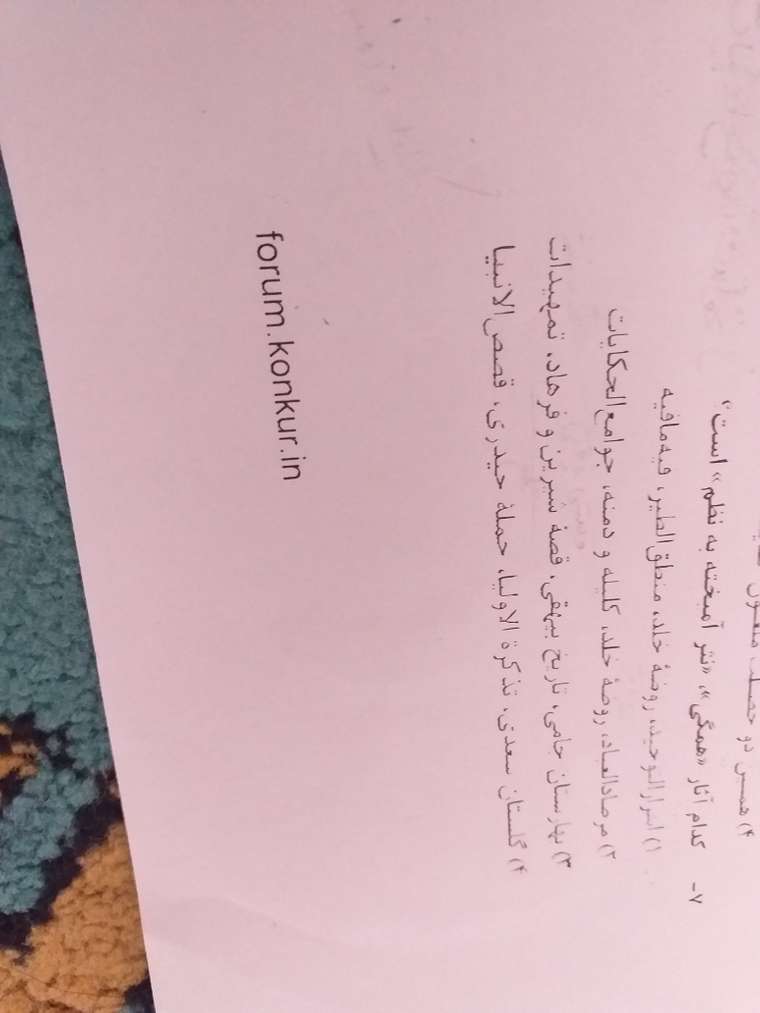 ۴) همین دو خصلت
۷- کدام آثار «همگی»، «نثر آمیخته به نظم» است؟
۱) اسرارالتوحید، روضهٔ خلد، منطق‌الطیر، فیه‌مافیه
۲) مرصادالعباد، روضهٔ خلد، کلیله و دمنه، جوامع‌الحکایات
۳) بهارستان جامی، تاریخ بیهقی، قصهٔ شیرین و فرهاد، تمهیدات
۴) گلستان سعدی، تذکرة الاولیا، حملهٔ حیدری، قصص‌الانبیا
forum.konkur.in